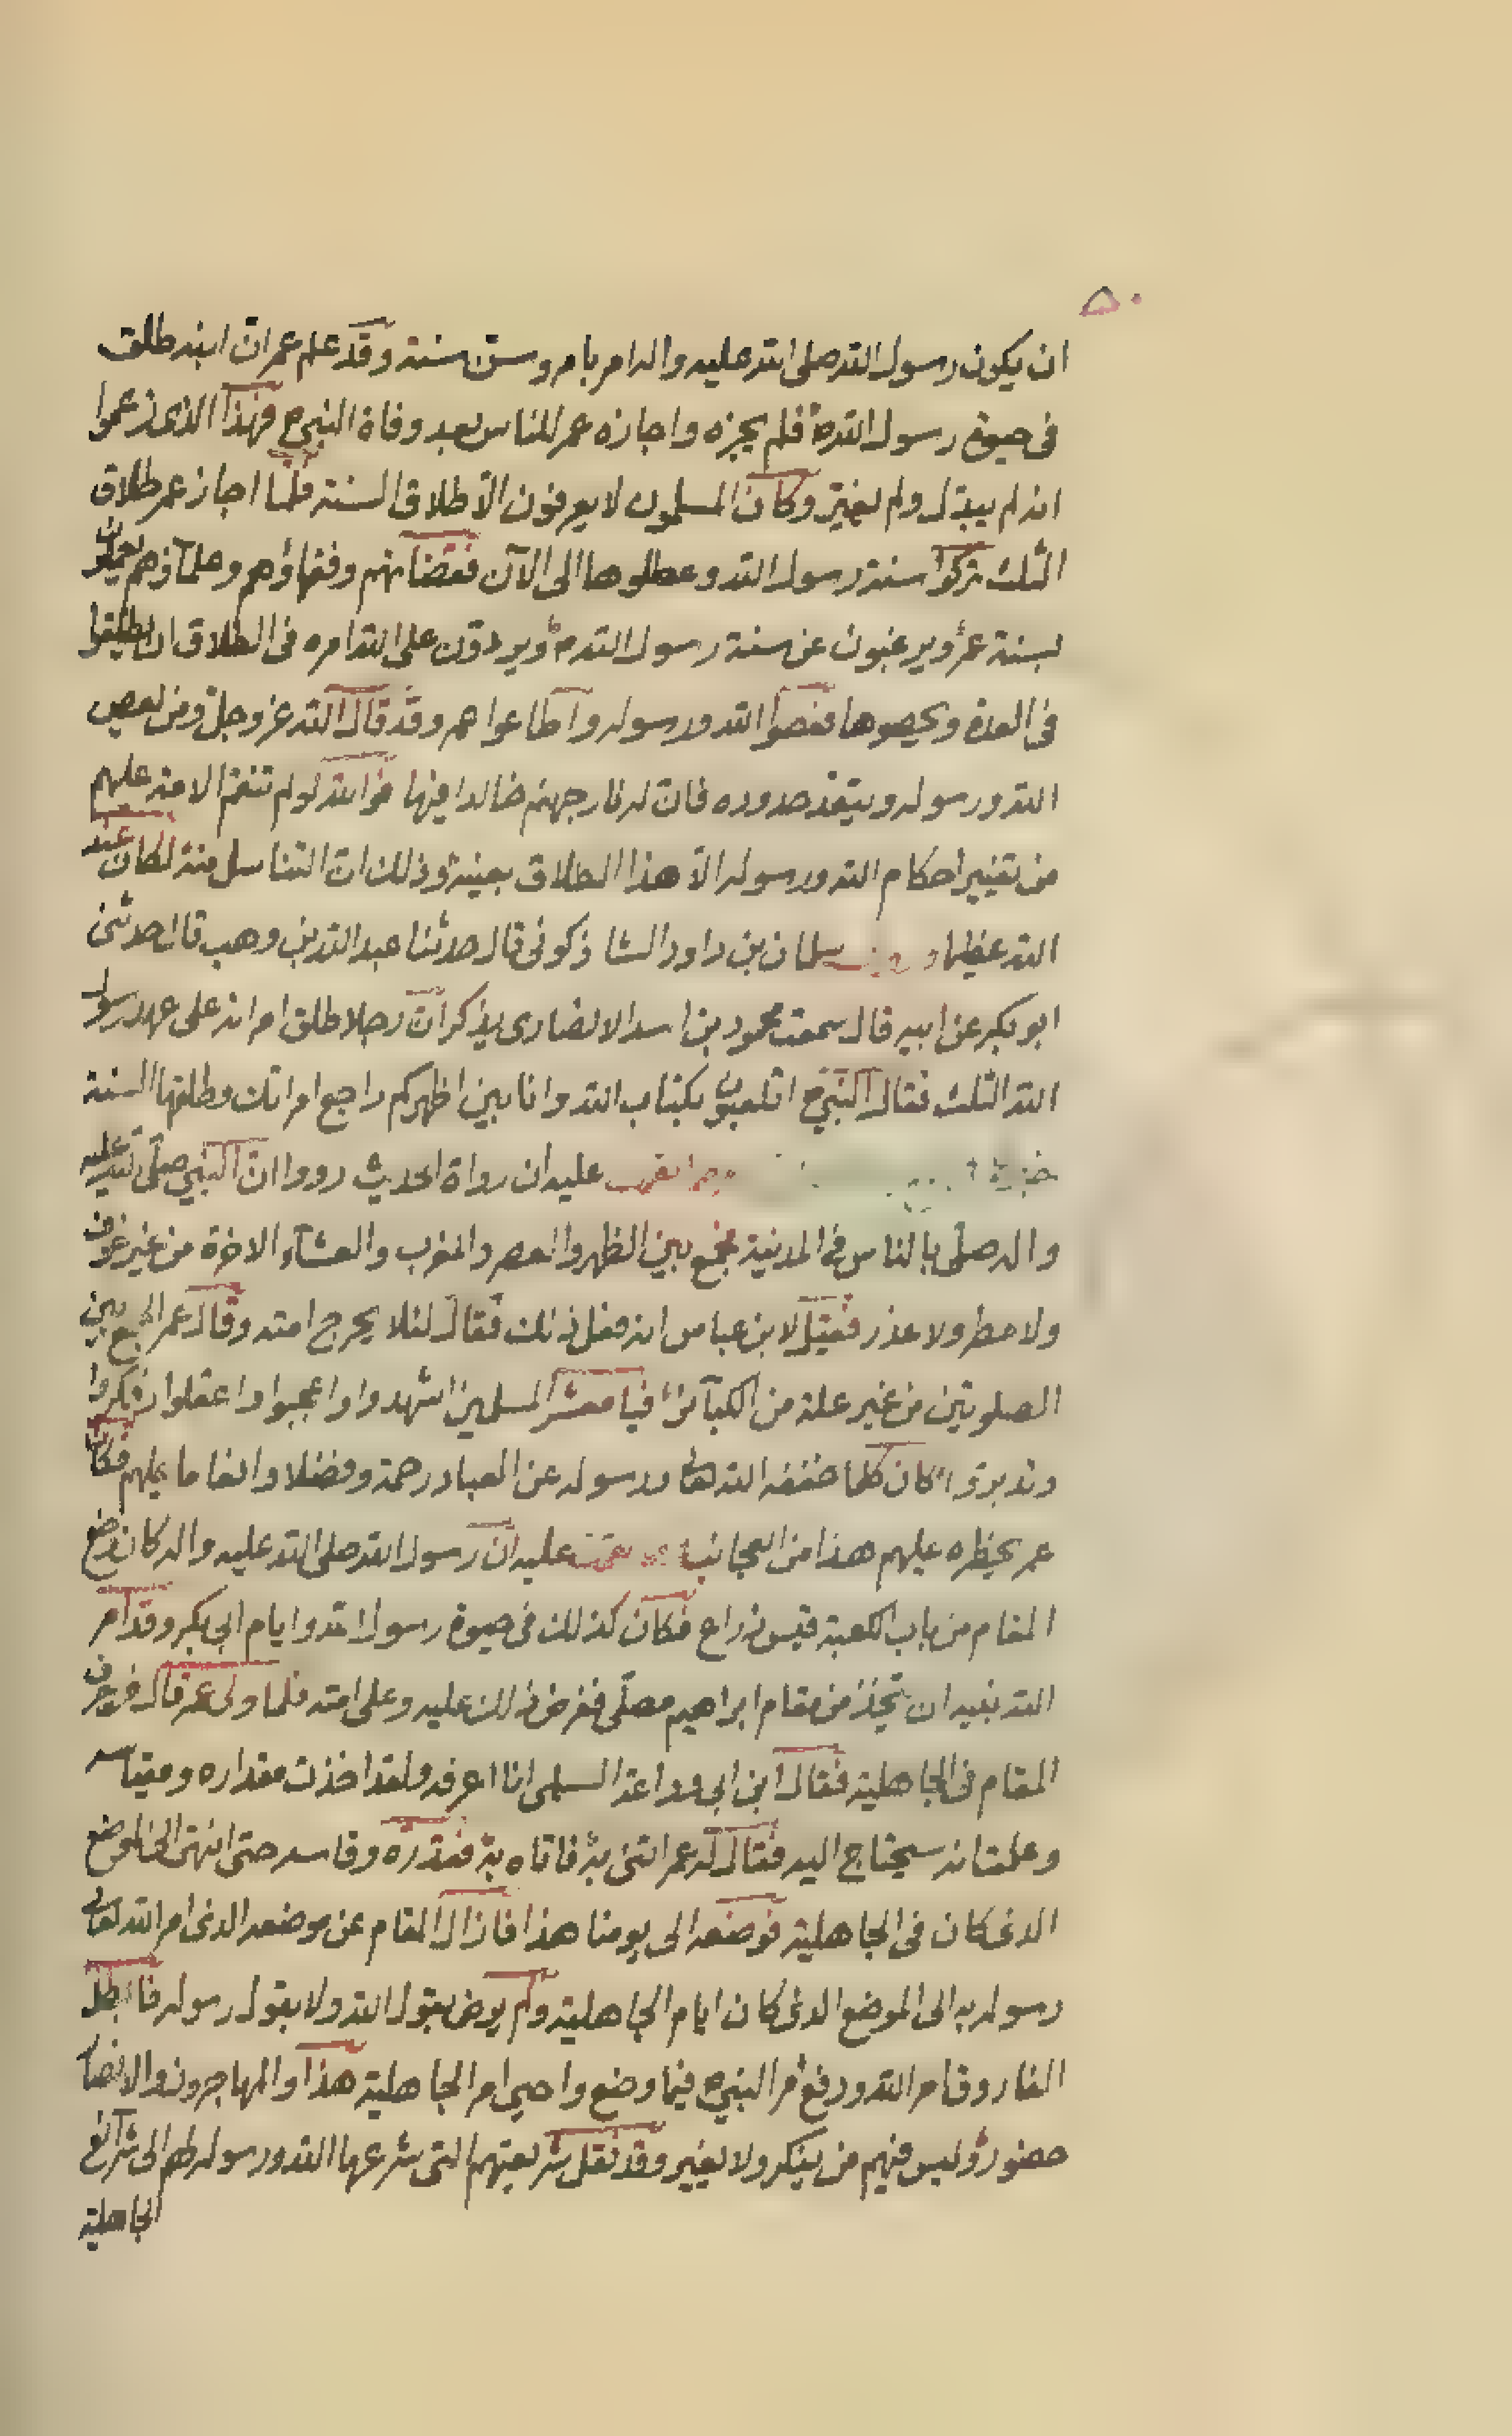 ۵۰
ان يكون رسول الله صلى الله عليه واله امر بامر وسن سنة وقد علم عمر ان ابنه طلق
فى حيوة رسول الله ص فلم يجزه واجازه عمر للناس بعد وفاة النبى ص فهذا الذى زعموا
انه لم يبدل ولم يغير وكان المسلمون لا يعرفون الا طلاق السنة فلما اجاز عمر طلاق
الثلث تركوا سنة رسول الله وعطلوها الى الآن فقضاتهم وفقهاؤهم وعلماؤهم يعملون
بسنة عمر ويرغبون عن سنة رسول الله ص ويردون على الله امره فى الطلاق ان يطلقوا
فى العدة ويحصوها فعصوا الله ورسوله واطاعوا عمر وقد قال الله عز وجل ومن يعص
الله ورسوله ويتعد حدوده فان له نار جهنم خالدا فيها فوالله لو لم تنقم الامة عليهم
من تغيير احكام الله ورسوله الا هذا الطلاق بعينه وذلك ان التناسل منه لكان عند
الله عظيما سلمان بن داود الشاذكونى قال حدثنا عبد الله بن وهب قال حدثنى
ابو بكير عن ابيه قال سمعت محمود بن اسد الانصارى يذكر ان رجلا طلق امراته على عهد رسول
الله الثلث فقال النبى ص اتلعبون بكتاب الله وانا بين اظهركم راجع امراتك وطلقها السنة
ومما نقمت عليه ان رواة الحديث رووا ان النبى صلى الله عليه
واله صلى بالناس فى المدينة فجمع بين الظهر والعصر والمغرب والعشآء الاخرة من غير خوف
ولا مطر ولا عذر فقيل لابن عباس انه فعل ذلك فقال لئلا يحرج امته وقال عمر الجمع بين
الصلوتين من غير علة من الكبآئر فيا معشر المسلمين اشهدوا واعجبوا واعقلوا وفكروا
وتدبروا كان كلما خففه الله تعالى ورسوله عن العباد رحمة وفضلا وانعاما عليهم فكان
عمر يحظره عليهم هذا من العجائب نقمت عليه ان رسول الله صلى الله عليه واله كان وضع
المقام من باب الكعبة قيس ذراع فكان كذلك فى حيوة رسول الله وايام ابى بكر وقد امر
الله نبيه ان يتخذ من مقام ابراهيم مصلى ففرض ذلك عليه وعلى امته فلما ولى عمر قال من يعرف
المقام فى الجاهلية فقال ابن ابى وداعة السلمى انا اعرفه ولقد اخذت مقداره ومقياسه
وعلمت انه سيحتاج اليه فقال له عمر ائتنى به فاتاه به فقدره وقاسه حتى انتهى الى الموضع
الذى كان فى الجاهلية فوضعه الى يومنا هذا فازال المقام عن موضعه الذى امر الله تعالى
رسوله به الى الموضع الذى كان ايام الجاهلية ولم يرض بقول الله ولا بقول رسوله فابطل
الفاروق امر الله ورفع امر النبى ص فيما وضع واحيى امر الجاهلية هذا والمهاجرون والانصار
حضور وليس فيهم من ينكر ولا يغير وقد نقل شريعتهم التى شرعها الله ورسوله لهم الى شرائع
الجاهلية